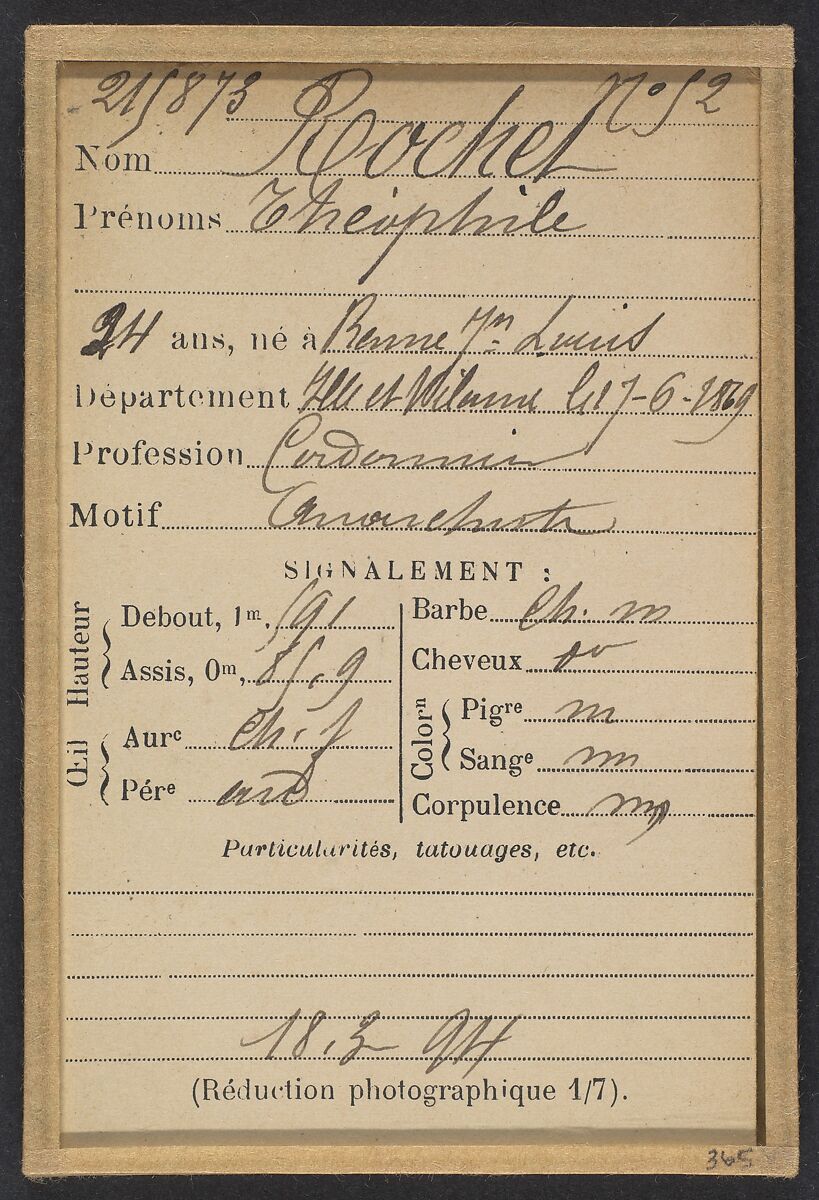 215873 N° 52
Nom Rochet
Prénoms Théophile
24 ans, né à Renne Jn Louis
Département Ille et Vilaine le 17-6-1869
Profession Cordonnier
Motif Anarchiste
SIGNALEMENT :
Hauteur
Debout, 1m, 591
Assis, 0m, 85,9
Œil
Aurc ch. f
Pére
Barbe ch. m
Cheveux do
Colorn
Pigre m
Sange m
Corpulence
Particularités, tatouages, etc.
18.3 94
(Réduction photographique 1/7).
365